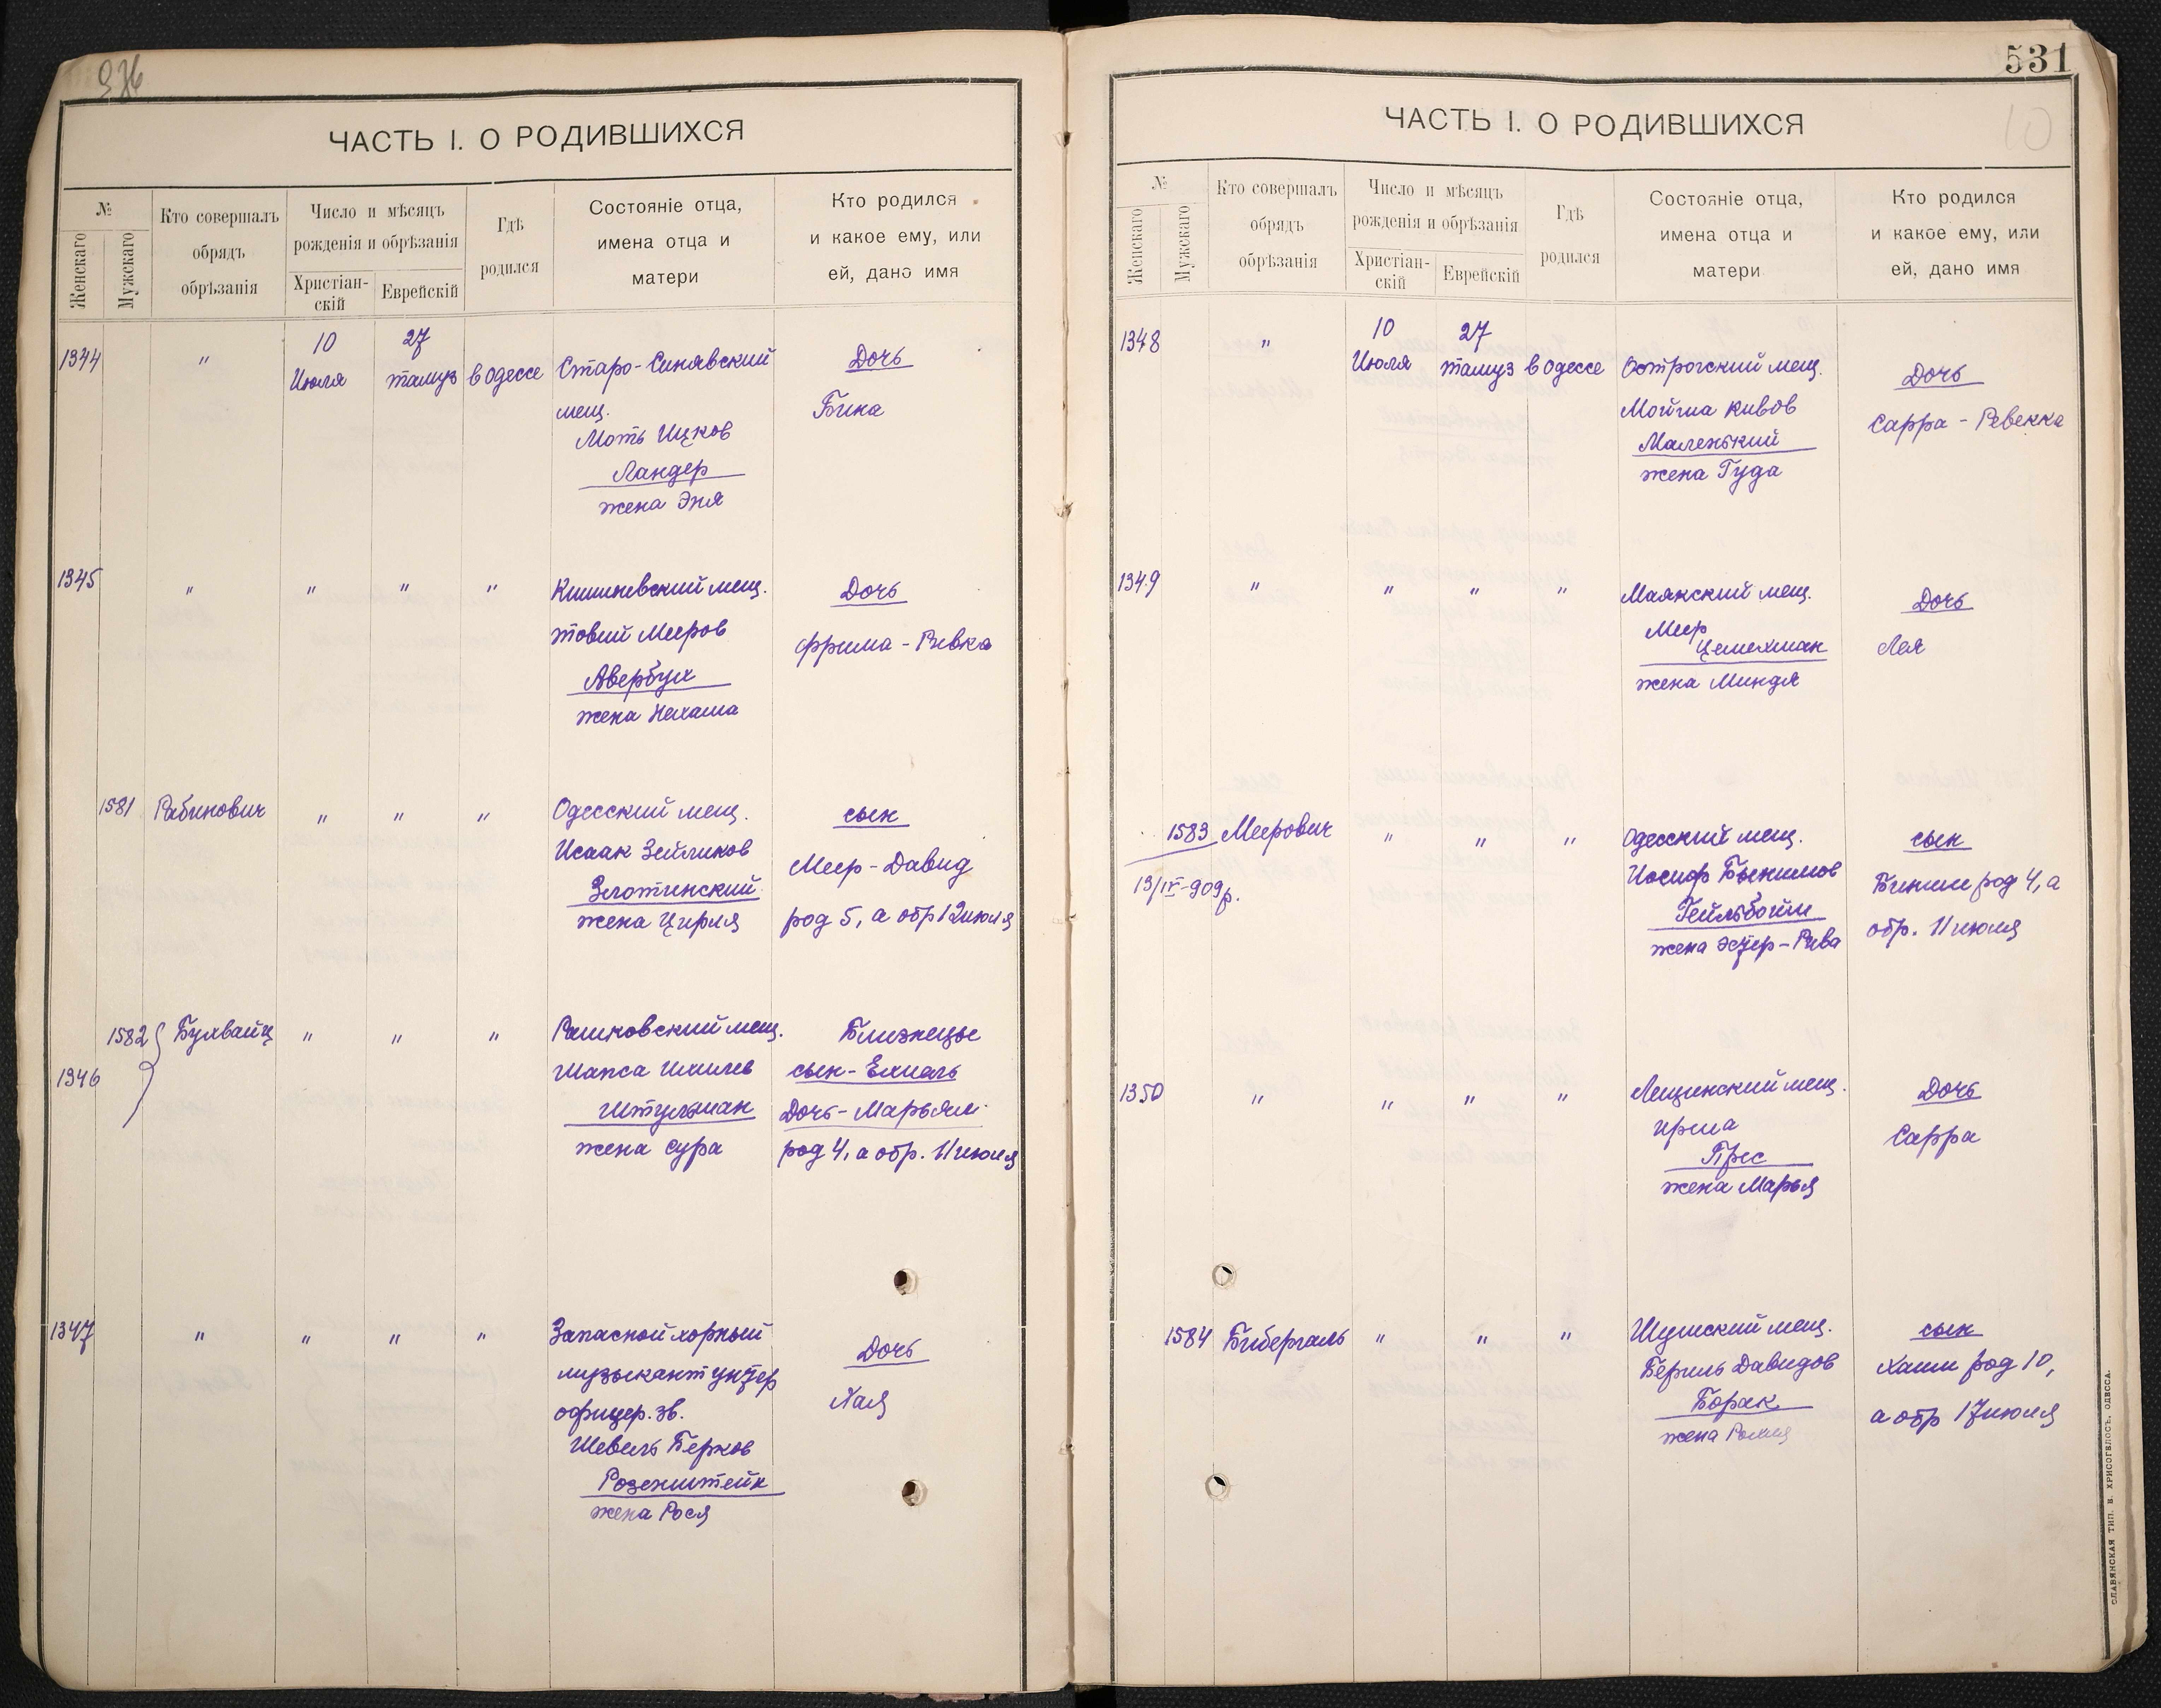 936
ЧАСТЬ I. О РОДИВШИХСЯ
№
Женскаго
Мужскаго
Кто совершалъ
обрядъ
обрѣзанія
Число и мѣсяцъ
рожденія и обрѣзанія
Христіан-
скій
Еврейскій
Гдѣ
родился
Состояніе отца,
имена отца и
матери
Кто родился
и какое ему, или
ей, дано имя
1344 " 10 Июля 27 тамуз в Одессе
Старо-Синявский
мещ.
Моть Ицков
Ландер
жена Эня
Дочь
Бина
1345 " " " "
Кишиневский мещ.
Товий Мееров
Авербух
жена Нехама
Дочь
Фрима-Ривка
1581 Рабинович " " "
Одесский мещ.
Исаак Зейликов
Злотинский
жена Цирля
сын
Меер-Давид
род 5, а обр 12 июля
1582 Бухвайц " " "
1346
Рашковский мещ.
Шапса Ихилев
Штульман
жена Сура
Близнецы
сын-Ехиель
Дочь-Марьям
род 4, а обр. 11 июля
1347 " " " "
Запасной хорный
музыкант унтер
офицер. зв.
Шевель Берков
Розенштейн
жена Рося
Дочь
Хая
531
10
ЧАСТЬ I. О РОДИВШИХСЯ
№
Женскаго
Мужскаго
Кто совершалъ
обрядъ
обрѣзанія
Число и мѣсяцъ
рожденія и обрѣзанія
Христіан-
скій
Еврейскій
Гдѣ
родился
Состояніе отца,
имена отца и
матери
Кто родился
и какое ему, или
ей, дано имя
1348 " 10 Июля 27 тамуз в Одессе
Острогский мещ.
Мойша Кивов
Маленький
жена Гуда
Дочь
Сарра-Ревекка
1349 " " " "
Маякский мещ.
Меер
Цемехман
жена Миндя
Дочь
Лея
1583 Меерович " " "
13/IV-909 р.
Одесский мещ.
Иосиф Бенимов
Гейльбойм
жена Эстер-Рива
сын
Биним род 4, а
обр. 11 июля
1350 " " " "
Лещинский мещ.
Ирма
Прес
жена Марья
Дочь
Сарра
1584 Бибергаль " " "
Шумский мещ.
Бериль Давидов
Борак
жена
сын
Хаим род 10,
а обр 17 июля
СЛАВЯНСКАЯ ТИП. В. ХРИСОГЕЛОСЪ, ОДЕССА.